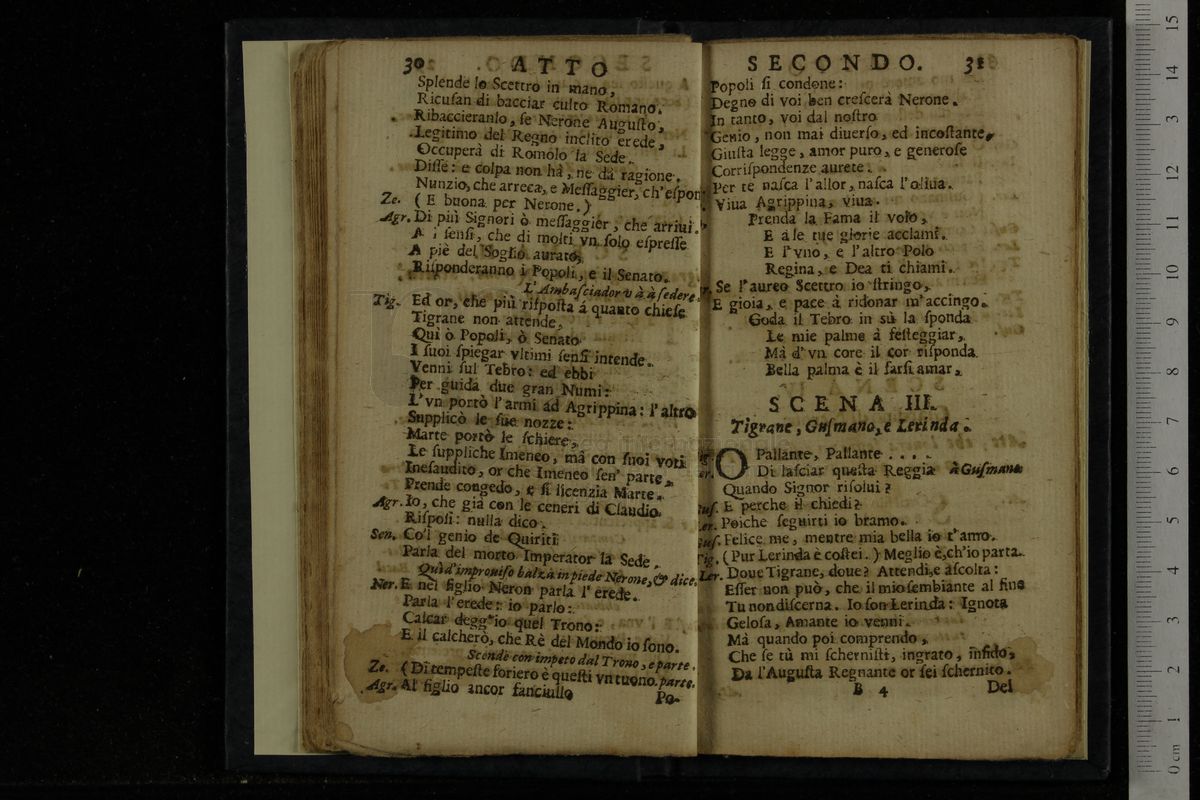 30 ATTO
Splende lo Scettro in mano,
Ricuſan di bacciar culto Romano.
Ribaccieranlo, ſe Nerone Auguſto,
Legitimo del Regno inclito erede,
Occuperà di Romolo la Sede.
Diſſe: e colpa non hà, ne dà ragione.
Nunzio, che arreca, e Meſſaggier, ch'eſpon
Ze. ( E buona per Nerone. )
Agr. Di più Signori ò meſſaggier, che arriui.
A i ſenſi, che di molti vn ſolo eſpreſſe
A piè del Soglio aurato,
Riſponderanno i Popoli, e il Senato.
L'Ambaſciador và à ſedere.
Tig. Ed or, che più riſpoſta á quanto chieſe
Tigrane non attende,
Quì ò Popoli, ò Senato
I ſuoi ſpiegar vltimi ſenſi intende.
Venni ſul Tebro: ed ebbi
Per guida due gran Numi:
L'vn portò l'armi ad Agrippina: l'altro
Supplicò le ſue nozze:
Marte portò le ſchiere,
Le ſuppliche Imeneo, mà con ſuoi voti
Ineſaudito, or che Imeneo ſen' parte,
Prende congedo, e ſi licenzia Marte.
Agr. Io, che già con le ceneri di Claudio
Riſpoſi: nulla dico.
Sen. Co'l genio de Quiriti
Parla del morto Imperator la Sede.
Quì d'improuiſo balza in piede Nerone, & dice.
Ner. E nel figlio Neron parla l'erede.
Parla l'erede: io parlo:
Calcar degg'io quel Trono:
E il calcherò, che Rè del Mondo io ſono.
Scende con impeto dal Trono, e parte.
Ze. ( Di tempeſte foriero è queſti vn tuono. parte.
Agr. Al figlio ancor fanciullo
Po-
SECONDO. 31
Popoli ſi condone:
Degno di voi ben creſcerà Nerone.
In tanto, voi dal noſtro
Genio, non mai diuerſo, ed incoſtante,
Giuſta legge, amor puro, e generoſe
Corriſpondenze aurete.
Per te naſca l'allor, naſca l'oliua.
Viua Agrippina, viua.
Prenda la Fama il volo,
E á le tue glorie acclami.
E l'vno, e l'altro Polo
Regina, e Dea ti chiami.
Se l'aureo Scettro io ſtringo,
E gioia, e pace à ridonar m'accingo.
Goda il Tebro in sù la ſponda
Le mie palme à feſteggiar,
Mà d'vn core il cor riſponda
Bella palma è il farſi amar.
SCENA III.
Tigrane, Guſmano, e Lerinda.
O Pallante, Pallante . . . .
Di laſciar queſta Reggia à Guſmano
Quando Signor riſolui?
Guſ. E perche il chiedi?
Ler. Poiche ſeguirti io bramo.
Guſ. Felice me, mentre mia bella io t'amo.
Tig. ( Pur Lerinda è coſtei. ) Meglio è, ch'io parta.
Ler. Doue Tigrane, doue? Attendi, e aſcolta:
Eſſer non può, che il mio ſembiante al fine
Tu non diſcerna. Io ſon Lerinda: Ignota
Geloſa, Amante io venni.
Mà quando poi comprendo,
Che ſe tù mi ſcherniſti, ingrato, infido,
Da l'Auguſta Regnante or ſei ſchernito.
B 4 Del
0 cm 1 2 3 4 5 6 7 8 9 10 11 12 13 14 15